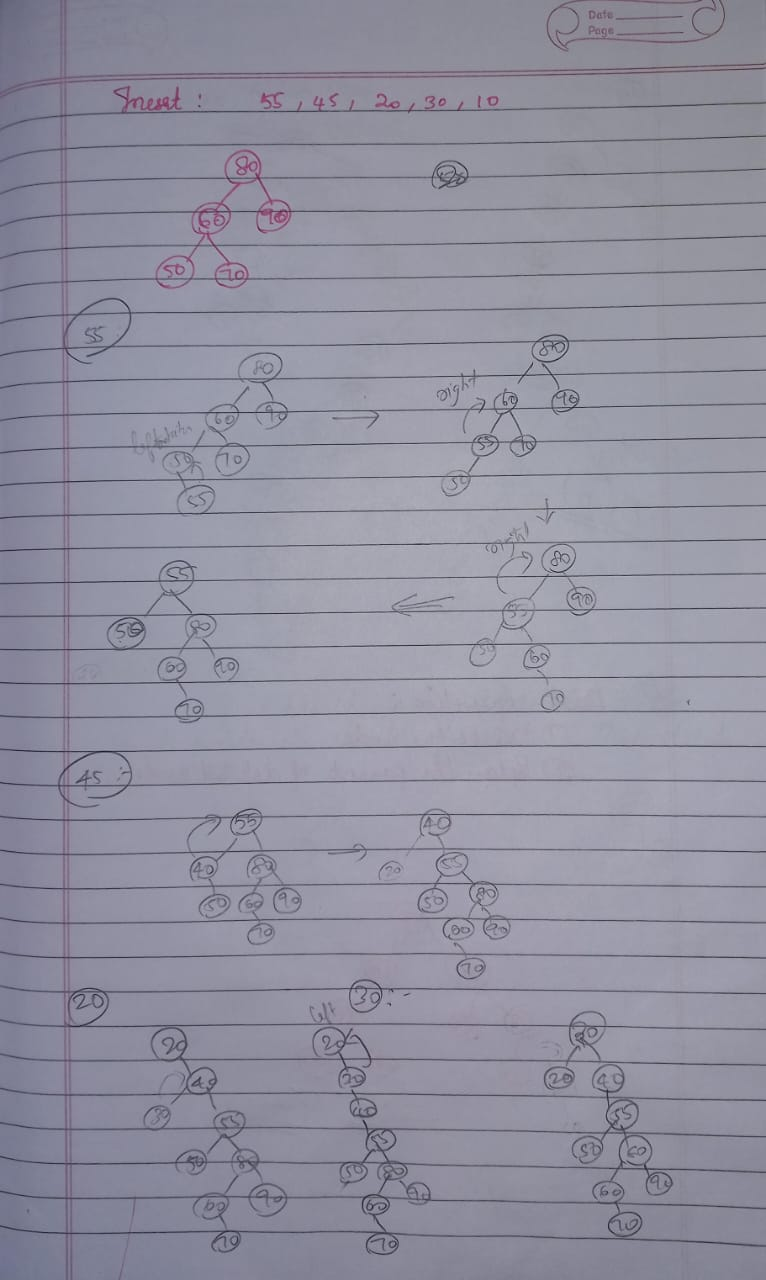 Date
Page
Insert : 55 , 45 , 20 , 30 , 10
80
60 90
50 70
55
80
60 90
50 70
55
right
80
60 90
55 70
50
right
80
55 90
50 60
70
55
50 80
60 90
70
45 :-
55
40 80
50 60 90
70
40
20 55
50 80
60 90
70
20
30 :-
left
20
40
30
55
50 80
60 90
70
20
30
40
55
50 80
60 90
70
30
20 40
55
50 80
60 90
70